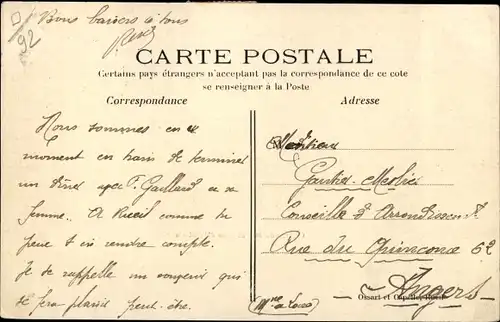 Bons baisers à tous
92
CARTE POSTALE
Certains pays étrangers n'acceptent pas la correspondance de ce cote
se renseigner à la Poste
Correspondance
Adresse
Nous sommes en ce
moment en train de terminer
un dîner avec F. Gaillard et sa
femme.. A Rueil comme tu
peux t'en rendre compte.
Je te rappelle un souvenir qui
te fera plaisir peut-être.
Monsieur
Gautier-Meslier
Conseille d'Arrondissement
Rue du Quinconce 62
Angers
(Mne et Loire)